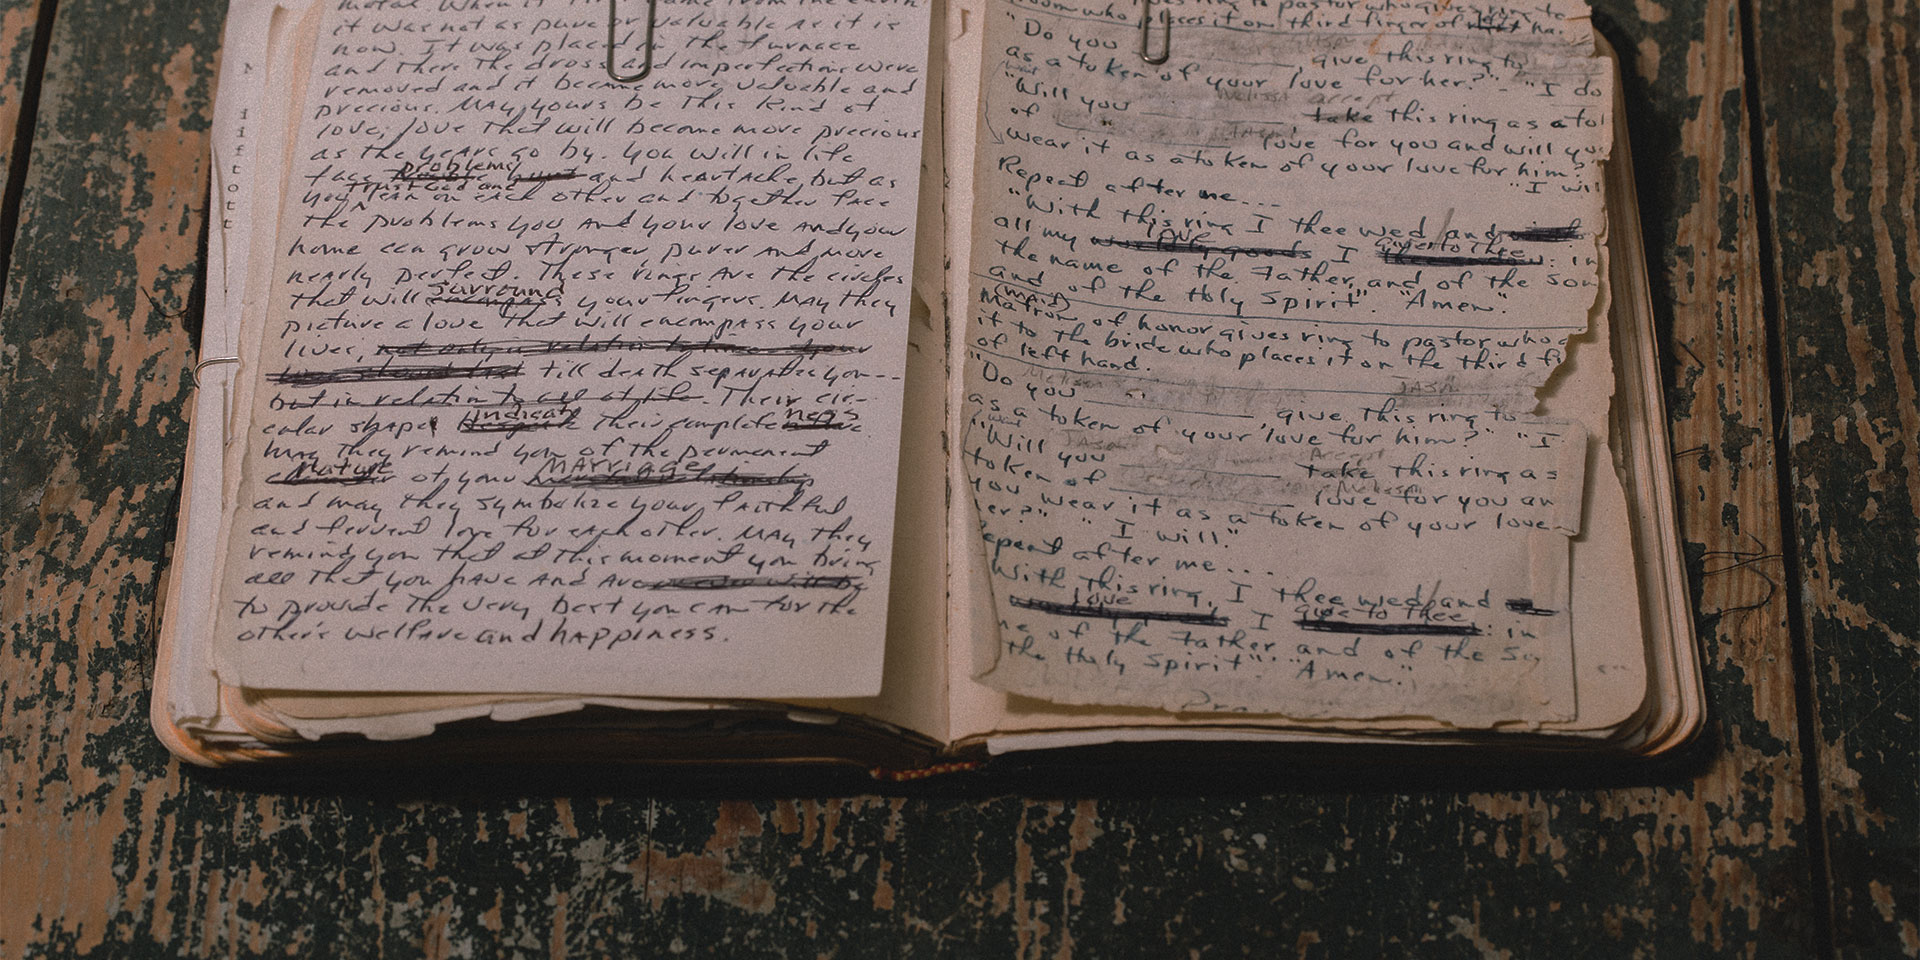 metal. When it first came from the earth
it was not as pure or valuable as it is
now. It was placed in the furnace
and there the dross and imperfections were
removed and it became more valuable and
precious. May yours be this kind of
love; love that will become more precious
as the years go by. You will in life
problems
face and heartache but as
trust God and
you lean on each other and together face
the problems you and your love and your
home can grow stronger, purer and more
nearly perfect. These rings are the circles
surround
that will encompass your fingers. May they
picture a love that will encompass your
lives, not only in relation to
till death separates you--
but in relation to all of life. Their cir-
indicate ness
cular shape their complete
may they remind you of the permanent
nature marriage
of your relationship
and may they symbolize your faithful
and fervent love for each other. May they
remind you that at this moment you bring
all that you have and are
to provide the very best you can for the
other's welfare and happiness.
ring to pastor who gives ring to
groom who places it on third finger of left ha.
"Do you ______, give this ring to
as a token of your love for her?" - "I do
Melissa accept
"Will you ______ take this ring as a to
of ______ love for you and will yo
wear it as a token of your love for him?"
"I wil
Repeat after me...
"With this ring I thee wed and
love give to thee
all my goods I : in
the name of the Father, and of the Son
and of the Holy Spirit". "Amen".
(maid)
Matron of honor gives ring to pastor who g
it to the bride who places it on the third f
of left hand.
Melissa Jason
"Do you ______, give this ring to
as a token of your love for him?" "I
Jason Accept
"Will you ______ take this ring as
Melissa
token of ______ love for you an
you wear it as a token of your love
er?" "I will."
epeat after me....
With this ring, I thee wed and
love give to thee
I : in
me of the Father and of the So
the Holy Spirit". "Amen."